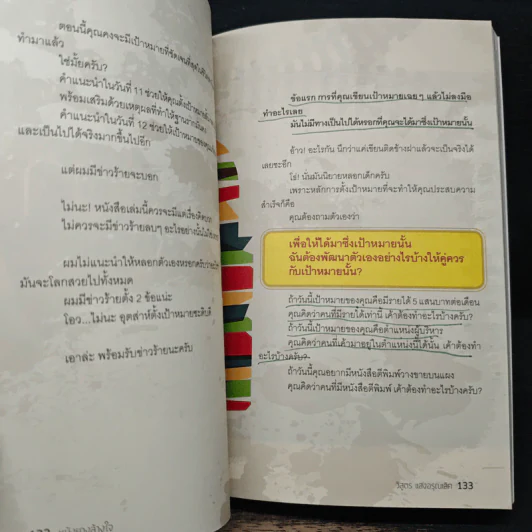 ตอนนี้คุณคงจะมีเป้าหมายที่ชัดเจนที่สุดในชีวิต
ทำมาแล้ว
ใช่มั้ยครับ?
คำแนะนำในวันที่ 11 ช่วยให้คุณตั้งเป้าหมาย
พร้อมเสริมด้วยเหตุผลที่ทำให้ฐานราก
คำแนะนำในวันที่ 12 ช่วยให้เป้าหมายของคุณ
และเป็นไปได้จริงมากขึ้นไปอีก
แต่ผมมีข่าวร้ายจะบอก
ไม่นะ! หนังสือเล่มนี้ควรจะมีแต่เรื่อง
ไม่ควรจะมีข่าวร้ายลบๆ อะไรอย่างนั้น
ผมไม่แนะนำให้หลอกตัวเองหรอกครับ
มันจะโลกสวยไปทั้งหมด
ผมมีข่าวร้ายตั้ง 2 ข้อแน่ะ
โอว...ไม่นะ อุตส่าห์ตั้งเป้าหมายระดับ
เอาล่ะ พร้อมรับข่าวร้ายนะครับ
ข้อแรก การที่คุณเขียนเป้าหมายเฉยๆ แล้วไม่ลงมือ
ทำอะไรเลย
มันไม่มีทางเป็นไปได้หรอกที่คุณจะได้มาซึ่งเป้าหมายนั้น
อ้าว! อะไรกัน นึกว่าแค่เขียนติดข้างฝาแล้วจะเป็นจริงได้
เลยซะอีก
โธ่! นั่นมันนิยายหลอกเด็กครับ
เพราะหลักการตั้งเป้าหมายที่จะทำให้คุณประสบความ
สำเร็จก็คือ
คุณต้องถามตัวเองว่า
เพื่อให้ได้มาซึ่งเป้าหมายนั้น
ฉันต้องพัฒนาตัวเองอย่างไรบ้างให้คู่ควร
กับเป้าหมายนั้น?
ถ้าวันนี้เป้าหมายของคุณคือมีรายได้ 5 แสนบาทต่อเดือน
คุณคิดว่าคนที่มีรายได้เท่านี้ เค้าต้องทำอะไรบ้างครับ?
ถ้าวันนี้เป้าหมายของคุณคือตำแหน่งผู้บริหาร
คุณคิดว่าคนที่เค้ามาอยู่ในตำแหน่งนี้ได้นั้น เค้าต้องทำ
อะไรบ้างครับ?
ถ้าวันนี้คุณอยากมีหนังสือตีพิมพ์วางขายบนแผง
คุณคิดว่าคนที่มีหนังสือตีพิมพ์ เค้าต้องทำอะไรบ้างครับ?
วิสูตร แสงอรุณเลิศ 133